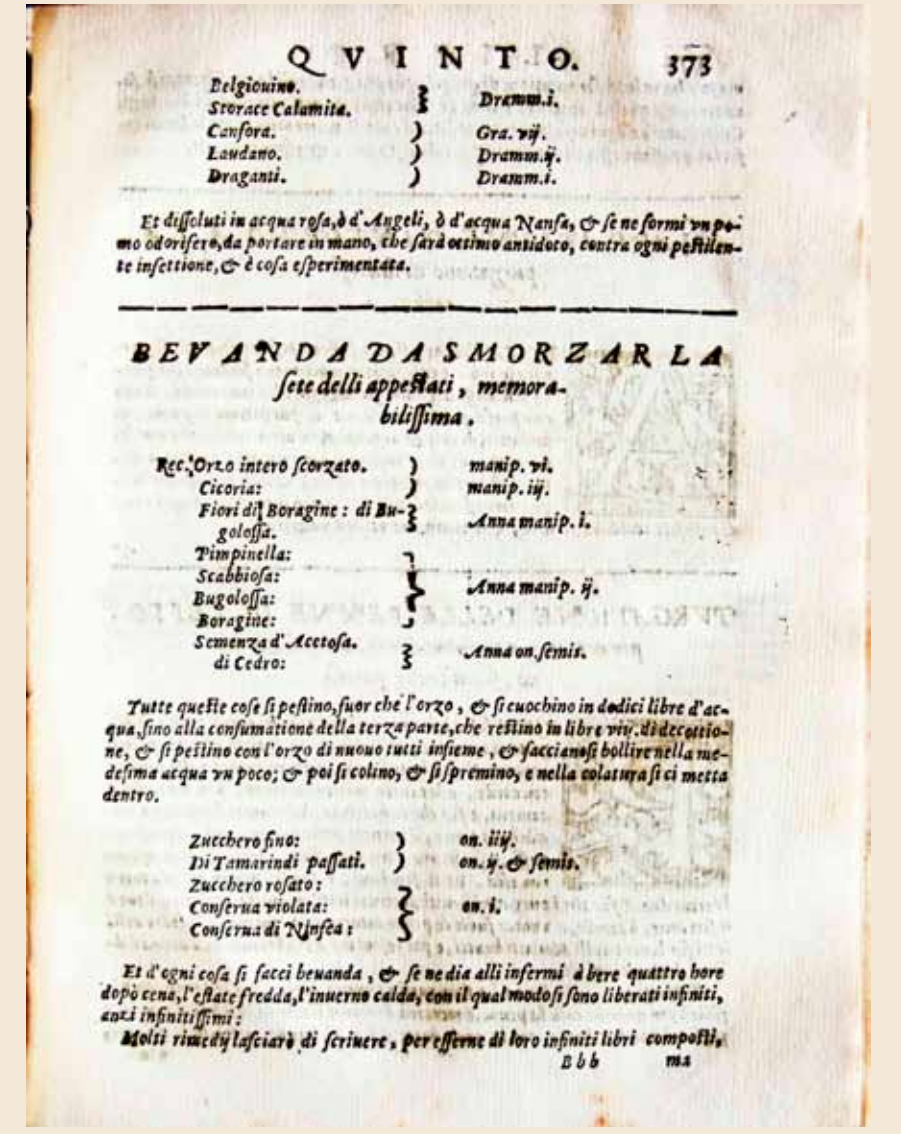 QVINTO. 373
Belgiouino.
Storace Calamita. } Dramm.i.
Canfora. ) Gra. vij.
Laudano. ) Dramm.ij.
Draganti. ) Dramm.i.
Et diſſoluti in acqua roſa, ò d'Angeli, ò d'acqua Nanfa, & ſe ne formi vn po-
mo odorifero, da portare in mano, che ſarà ottimo antidoto, contra ogni peſtilen-
te infettione, & è coſa eſperimentata.
BEVANDA DA SMORZAR LA
ſete delli appeſtati, memora-
biliſſima.
Rec. Orzo intero ſcorzato. ) manip. vi.
Cicoria: ) manip. iij.
Fiori di Boragine : di Bu-
goloſſa. } Anna manip. i.
Pimpinella:
Scabbioſa:
Bugoloſſa: } Anna manip. ij.
Boragine:
Semenza d'Acetoſa.
di Cedro: } Anna on. ſemis.
Tutte queſte coſe ſi peſtino, fuor che l'orzo, & ſi cuochino in dodici libre d'ac-
qua, ſino alla conſumatione della terza parte, che reſtino in libre viij. di decottio-
ne, & ſi peſtino con l'orzo di nuouo tutti inſieme, & faccianoſi bollire nella me-
deſima acqua vn poco; & poi ſi colino, & ſi ſpremino, e nella colatura ſi ci metta
dentro.
Zucchero fino: ) on. iiij.
Di Tamarindi paſſati. ) on. ij. & ſemis.
Zucchero roſato :
Conſerua violata: } on. i.
Conſerua di Ninfea :
Et d'ogni coſa ſi facci beuanda, & ſe ne dia alli infermi à bere quattro hore
dopò cena, l'eſtate fredda, l'inuerno calda, con il qual modo ſi ſono liberati infiniti,
anzi infinitiſſimi :
Molti rimedij laſciarò di ſcriuere, per eſſerne di loro infiniti libri compoſti,
Bbb ma